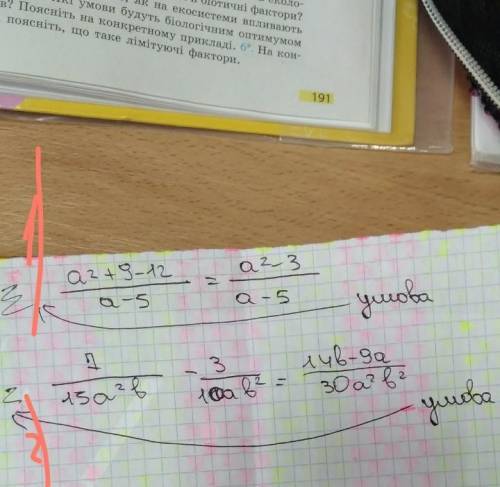 як на екосистеми впливають
біотичні фактори?
умови будуть біологічним оптимумом
в? Поясніть на конкретному прикладі. 6*. На кон-
поясніть, що таке лімітуючі фактори.
191
1
a²+9-12 / a-5 = a²-3 / a-5
умова
7 / 15a²b - 3 / 10ab² = 14b-9a / 30a²b²
умова
2